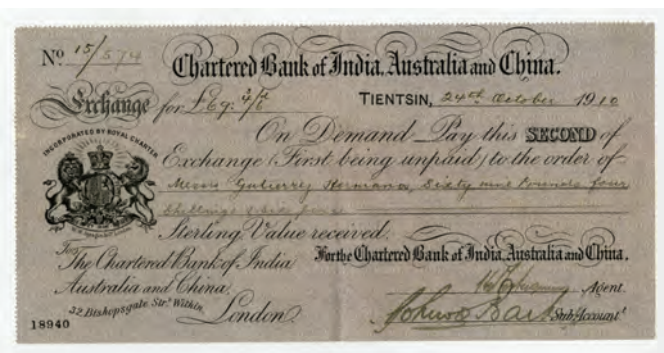 Nº 15/574
Chartered Bank of India, Australia and China.
Exchange for £69: 4/6
TIENTSIN, 24th October 1910
INCORPORATED BY ROYAL CHARTER
On Demand Pay this SECOND of
Exchange (First being unpaid) to the order of
Messrs Gutierrez Hermanos, Sixty nine Pounds four
Shillings
Sterling Value received.
To
The Chartered Bank of India
Australia and China.
32, Bishopsgate Str. Within,
London
For the Chartered Bank of India, Australia and China.
Agent.
Sub Account
18940